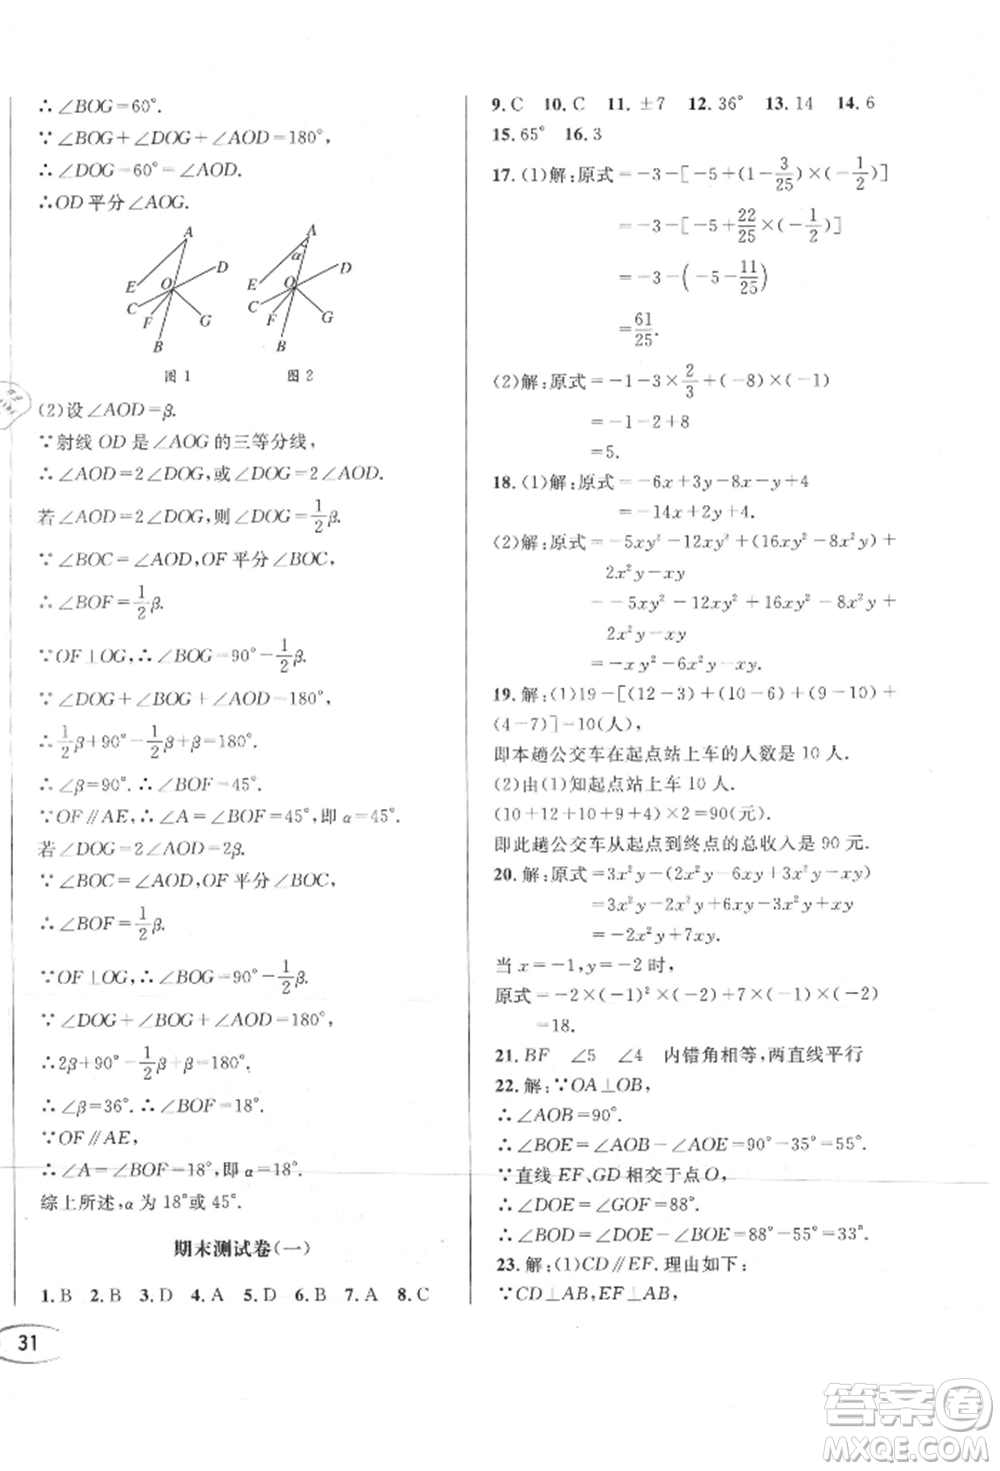 ∴∠BOG=60°.
∵∠BOG+∠DOG+∠AOD=180°,
∴∠DOG=60°=∠AOD.
∴OD平分∠AOG.
A
D
E
O
C
F
G
B
图1
A
α
D
E
O
C
F
G
B
图2
(2)设∠AOD=β.
∵射线OD是∠AOG的三等分线,
∴∠AOD=2∠DOG,或∠DOG=2∠AOD.
若∠AOD=2∠DOG,则∠DOG=1/2β.
∵∠BOC=∠AOD,OF平分∠BOC,
∴∠BOF=1/2β.
∵OF⊥OG,∴∠BOG=90°-1/2β.
∵∠DOG+∠BOG+∠AOD=180°,
∴1/2β+90°-1/2β+β=180°.
∴∠β=90°.∴∠BOF=45°.
∵OF∥AE,∴∠A=∠BOF=45°,即α=45°.
若∠DOG=2∠AOD=2β.
∵∠BOC=∠AOD,OF平分∠BOC,
∴∠BOF=1/2β.
∵OF⊥OG,∴∠BOG=90°-1/2β.
∵∠DOG+∠BOG+∠AOD=180°,
∴2β+90°-1/2β+β=180°.
∴∠β=36°.∴∠BOF=18°.
∵OF∥AE,
∴∠A=∠BOF=18°,即α=18°.
综上所述,α为18°或45°.
期末测试卷(一)
1.B 2.B 3.D 4.A 5.D 6.B 7.A 8.C
31
9.C 10.C 11.±7 12.36° 13.14 14.6
15.65° 16.3
17.(1)解:原式=-3-[-5+(1-3/25)×(-1/2)]
=-3-[-5+22/25×(-1/2)]
=-3-(-5-11/25)
=61/25.
(2)解:原式=-1-3×2/3+(-8)×(-1)
=-1-2+8
=5.
18.(1)解:原式=-6x+3y-8x-y+4
=-14x+2y+4.
(2)解:原式=-5xy²-12xy²+(16xy²-8x²y)+
2x²y-xy
=-5xy²-12xy²+16xy²-8x²y+
2x²y-xy
=-xy²-6x²y-xy.
19.解:(1)19-[(12-3)+(10-6)+(9-10)+
(4-7)]=10(人),
即本趟公交车在起点站上车的人数是10人.
(2)由(1)知起点站上车10人.
(10+12+10+9+4)×2=90(元).
即此趟公交车从起点到终点的总收入是90元.
20.解:原式=3x²y-(2x²y-6xy+3x²y-xy)
=3x²y-2x²y+6xy-3x²y+xy
=-2x²y+7xy.
当x=-1,y=-2时,
原式=-2×(-1)²×(-2)+7×(-1)×(-2)
=18.
21.BF ∠5 ∠4 内错角相等,两直线平行
22.解:∵OA⊥OB,
∴∠AOB=90°.
∴∠BOE=∠AOB-∠AOE=90°-35°=55°.
∵直线EF、GD相交于点O,
∴∠DOE=∠GOF=88°.
∴∠BOD=∠DOE-∠BOE=88°-55°=33°.
23.解:(1)CD∥EF.理由如下:
∵CD⊥AB,EF⊥AB,
答案卷
MXQE.COM